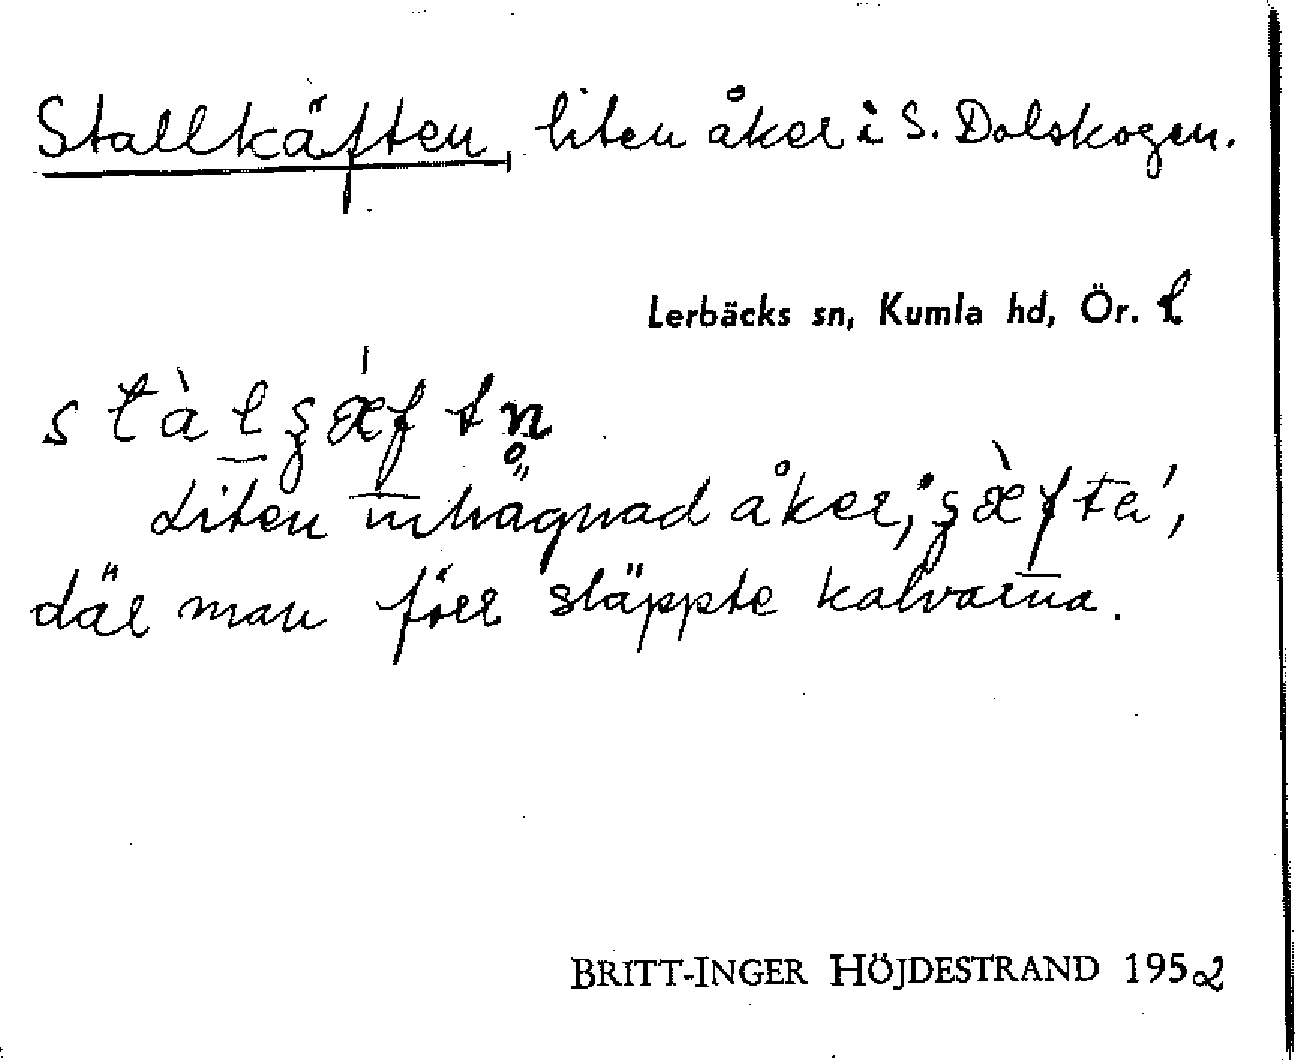 Stallkäften, liten åker i S. Dolskogen.
Lerbäcks sn, Kumla hd, Ör. l
stàlʂǽftn̥
Liten inhägnad åker, "ʂæ̀fta",
där man förr släppte kalvarna.
BRITT-INGER HÖJDESTRAND 1952